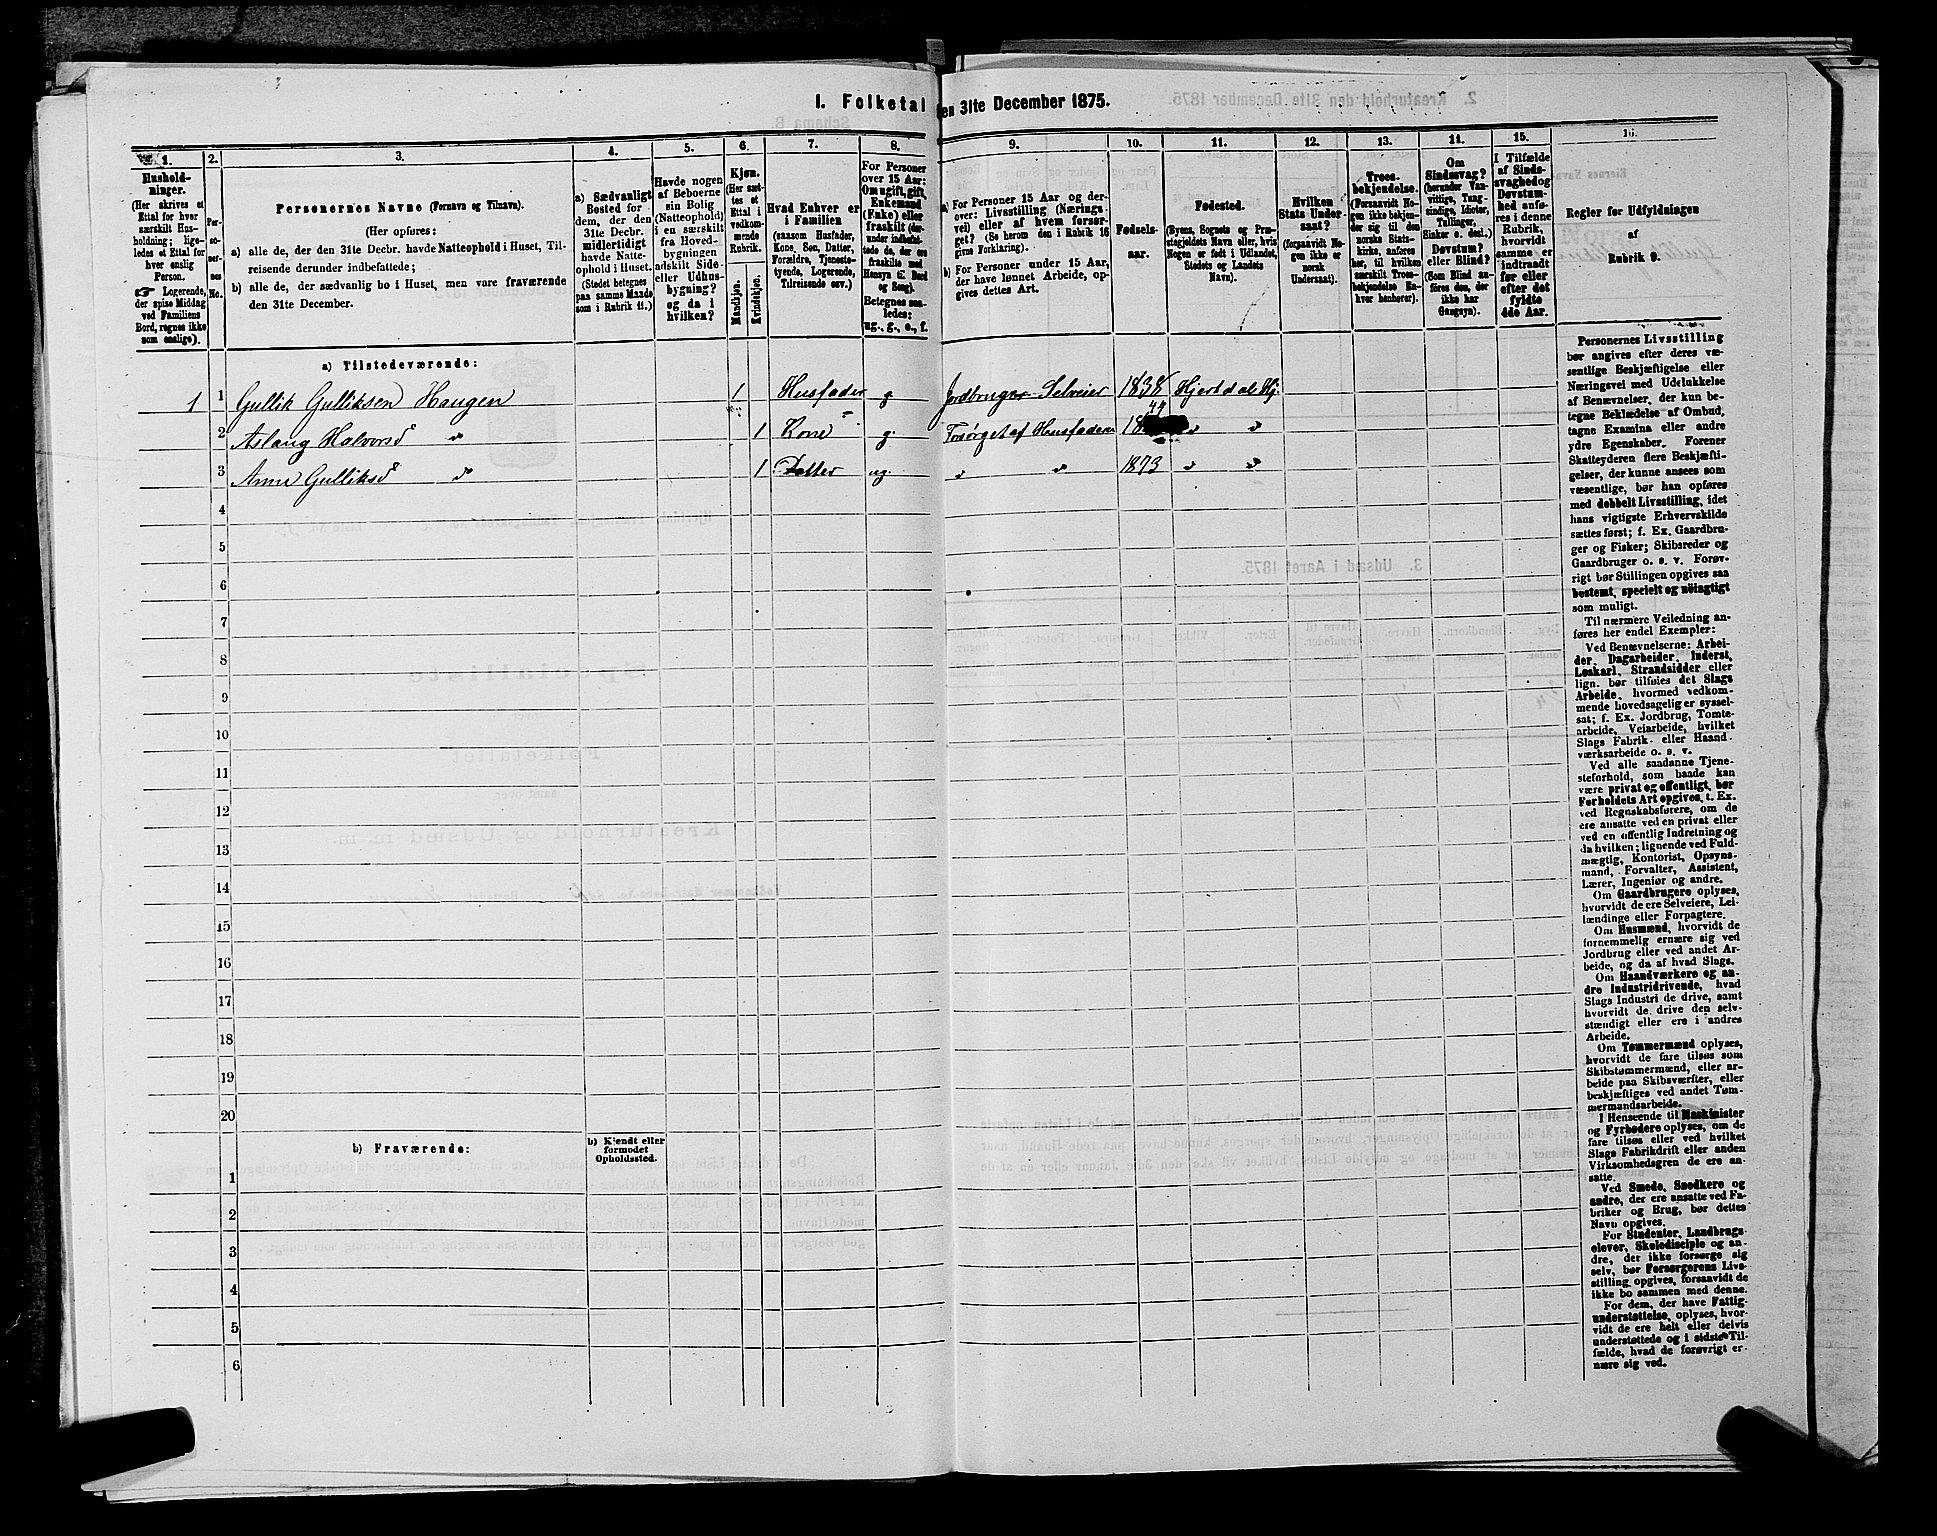 I. Folketal den 31te December 1875.
1.
Husholdninger.
(Her skrives et
Ettal for hver
særskilt Husholdning; ligeledes
et Ettal for
hver enslig
Person.
☞ Logerende,
der spise Middag
ved Familiens
Bord, regnes ikke
som enslige).
2.
Personernes
No.
3.
Personernes Navne (Fornavn og Tilnavn).
(Her opføres:
a) alle de, der den 31te Decbr. havde Natteophold i Huset, Tilreisende derunder indbefattede;
b) alle de, der sædvanlig bo i Huset, men vare fraværende
den 31te December.
4.
a) Sædvanligt
Bosted for
dem, der den
31te Decbr.
midlertidigt
havde Natteophold
i Huset.
(Stedet betegnes
paa samme Maade
som i Rubrik 11.)
5.
Havde nogen
af Beboerne
sin Bolig
(Natteophold)
i en særskilt
fra Hovedbygningen
adskilt Side-
eller Udhusbygning?
og da i
hvilken?
6.
Kjøn.
(Her sættes
et
Ettal i
vedkommende
Rubrik.
Mandkjøn.
Kvindekjøn.
7.
Hvad Enhver er
i Familien
(saasom Husfader,
Kone, Søn, Datter,
Forældre, Tjenestetyende,
Logerende,
Tilreisende osv.)
8.
For Personer
over 15 Aar:
Om ugift, gift,
Enkemand
(Enke) eller
fraskilt (derunder
indbefattede
de, der ere
fraskilte med
Hensyn til Bord
og Seng).
Betegnes saaledes:
ug., g., e., f.
9.
a) For Personer 15 Aar og derover:
Livsstilling (Næringsvei)
eller af hvem forsørget?
(Se herom den i Rubrik 16
givne Forklaring).
b) For Personer under 15 Aar,
der have lønnet Arbeide, opgives
dettes Art.
10.
Fødselsaar.
11.
Fødested.
(Byens, Sognets og Præstegjeldets
Navn eller, hvis
Nogen er født i Udlandet,
Stedets og Landets
Navn).
12.
Hvilken
Stats Undersaat?
(forsaavidt Nogen
ikke er
norsk
Undersaat).
13.
Troesbekjendelse.
(Forsaavidt Nogen
ikke bekjender
sig til den
norske Statskirke,
anføres
her, til hvilken
særskilt Troesbekjendelse
Enhver
henhører).
14.
Om
Sindssvag?
(herunder Vanvittige,
Tungsindige,
Idioter,
Tullinger,
Sinker o. desl.)
Døvstum?
eller Blind?
(Som Blind anføres
den, der
ikke har
Gangsyn).
15.
I Tilfælde
af Sindssvaghed
og
Døvstumhed
anføres
i denne
Rubrik,
hvorvidt
samme er
indtraadt
før eller
efter det
fyldte
4de Aar.
16.
Regler for Udfyldningen
af
Rubrik 9.
a) Tilstedeværende:
1 1 Gullik Gulliksen Haugen 1 Husfader g. Jordbruger Selveier 1838 Hjertdal Hj.
2 Aslaug Halvorsd " 1 Kone g. Forsørget af Husfaderen 1844 " "
3 Anne Gulliksd " 1 Datter ug. " " 1873 " "
4
5
6
7
8
9
10
11
12
13
14
15
16
17
18
19
20
b) Fraværende:
b) Kjendt eller
formodet
Opholdssted.
1
2
3
4
5
6
Personernes Livsstilling
bør angives efter deres væsentlige
Beskjæftigelse eller
Næringsvei med Udelukkelse
af Benævnelser, der kun betegne
Beklædelse af Ombud,
tagne Examina eller andre
ydre Egenskaber. Forener
Skatteyderen flere Beskjæftigelser,
der kunne ansees som
væsentlige, bør han opføres
med dobbelt Livsstilling, idet
hans vigtigste Erhvervskilde
sættes først; f. Ex. Gaardbruger
og Fisker; Skibsreder og
Gaardbruger o. s. v. Forøvrigt
bør Stillingen opgives saa
bestemt, specielt og nøiagtigt
som muligt.
Til nærmere Veiledning anføres
her endel Exempler:
Ved Benævnelserne: Arbeider,
Dagarbeider, Inderst,
Løskarl, Strandsidder eller
lign. bør tilføies det Slags
Arbeide, hvormed vedkommende
hovedsagelig er sysselsat;
f. Ex. Jordbrug, Tomtearbeide,
Veiarbeide, hvilket
Slags Fabrik- eller Haandværksarbeide
o. s. v.
Ved alle saadanne Tjenesteforhold,
som baade kan
være privat og offentligt, bør
Forholdets Art opgives, t. Ex.
ved Regnskabsførere, om de
ere ansatte ved en privat eller
ved en offentlig Indretning og
da hvilken; lignende ved Fuldmægtig,
Kontorist, Opsynsmand,
Forvalter, Assistent,
Lærer, Ingeniør og andre.
Om Gaardbrugere oplyses,
hvorvidt de ere Selveiere, Leilændinge
eller Forpagtere.
Om Husmænd, hvorvidt de
fornemmelig ernære sig ved
Jordbrug eller ved andet Arbeide,
og da af hvad Slags.
Om Haandværkere og andre
Industridrivende, hvad
Slags Industri de drive, samt
hvorvidt de drive den selvstændigt
eller ere i andres
Arbeide.
Om Tømmermænd oplyses,
hvorvidt de fare tilsøs som
Skibstømmermænd, eller arbeide
paa Skibsværfter, eller
beskjæftiges ved andet Tømmermandsarbeide.
I Henseende til Maskinister
og Fyrbødere oplyses, om de
fare tilsøs eller ved hvilket
Slags Fabrikdrift eller anden
Virksomhedsgren de ere ansatte.
Ved Smede, Snedkere og
andre, der ere ansatte ved Fabriker
og Brug, bør dettes
Navn opgives.
For Studenter, Landbrugselever,
Skoledisciple og andre,
der ikke forsørge sig
selv, bør Forsørgerens Livsstilling
opgives, forsaavidt de
ikke bo sammen med denne.
For dem, der have Fattigunderstøttelse,
oplyses, hvorvidt
de ere helt eller delvis
understøttede og i sidste Tilfælde,
hvad de forøvrigt ernære
sig ved.